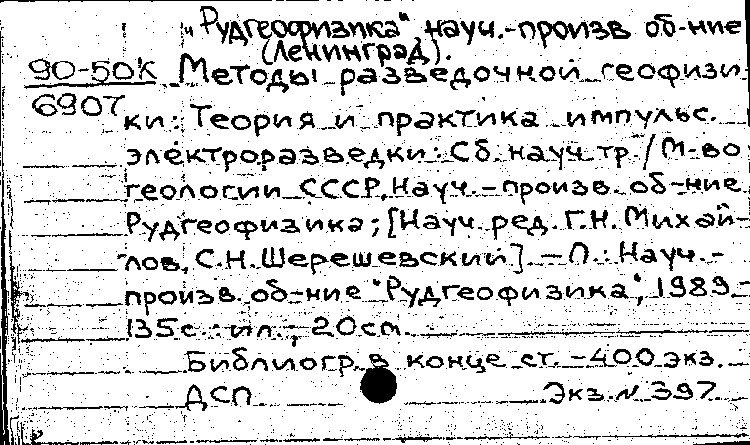 „Рудгеофизика", науч.-произв об-ние
(Ленинград).
90-50К Методы разведочной геофизи-
6907
ки: Теория и практика импульс.
электроразведки: Сб. науч. тр. / М-во
геологии СССР, Науч.-произв. об-ние
Рудгеофизика; [Науч. ред. Г.Н. Михай-
лов, С.Н. Шерешевский]. – Л.: Науч.-
произв. об-ние "Рудгеофизика", 1989. –
135с.: ил.; 20см.
Библиогр. в конце ст. – 400 экз.
ДСП Экз. № 397